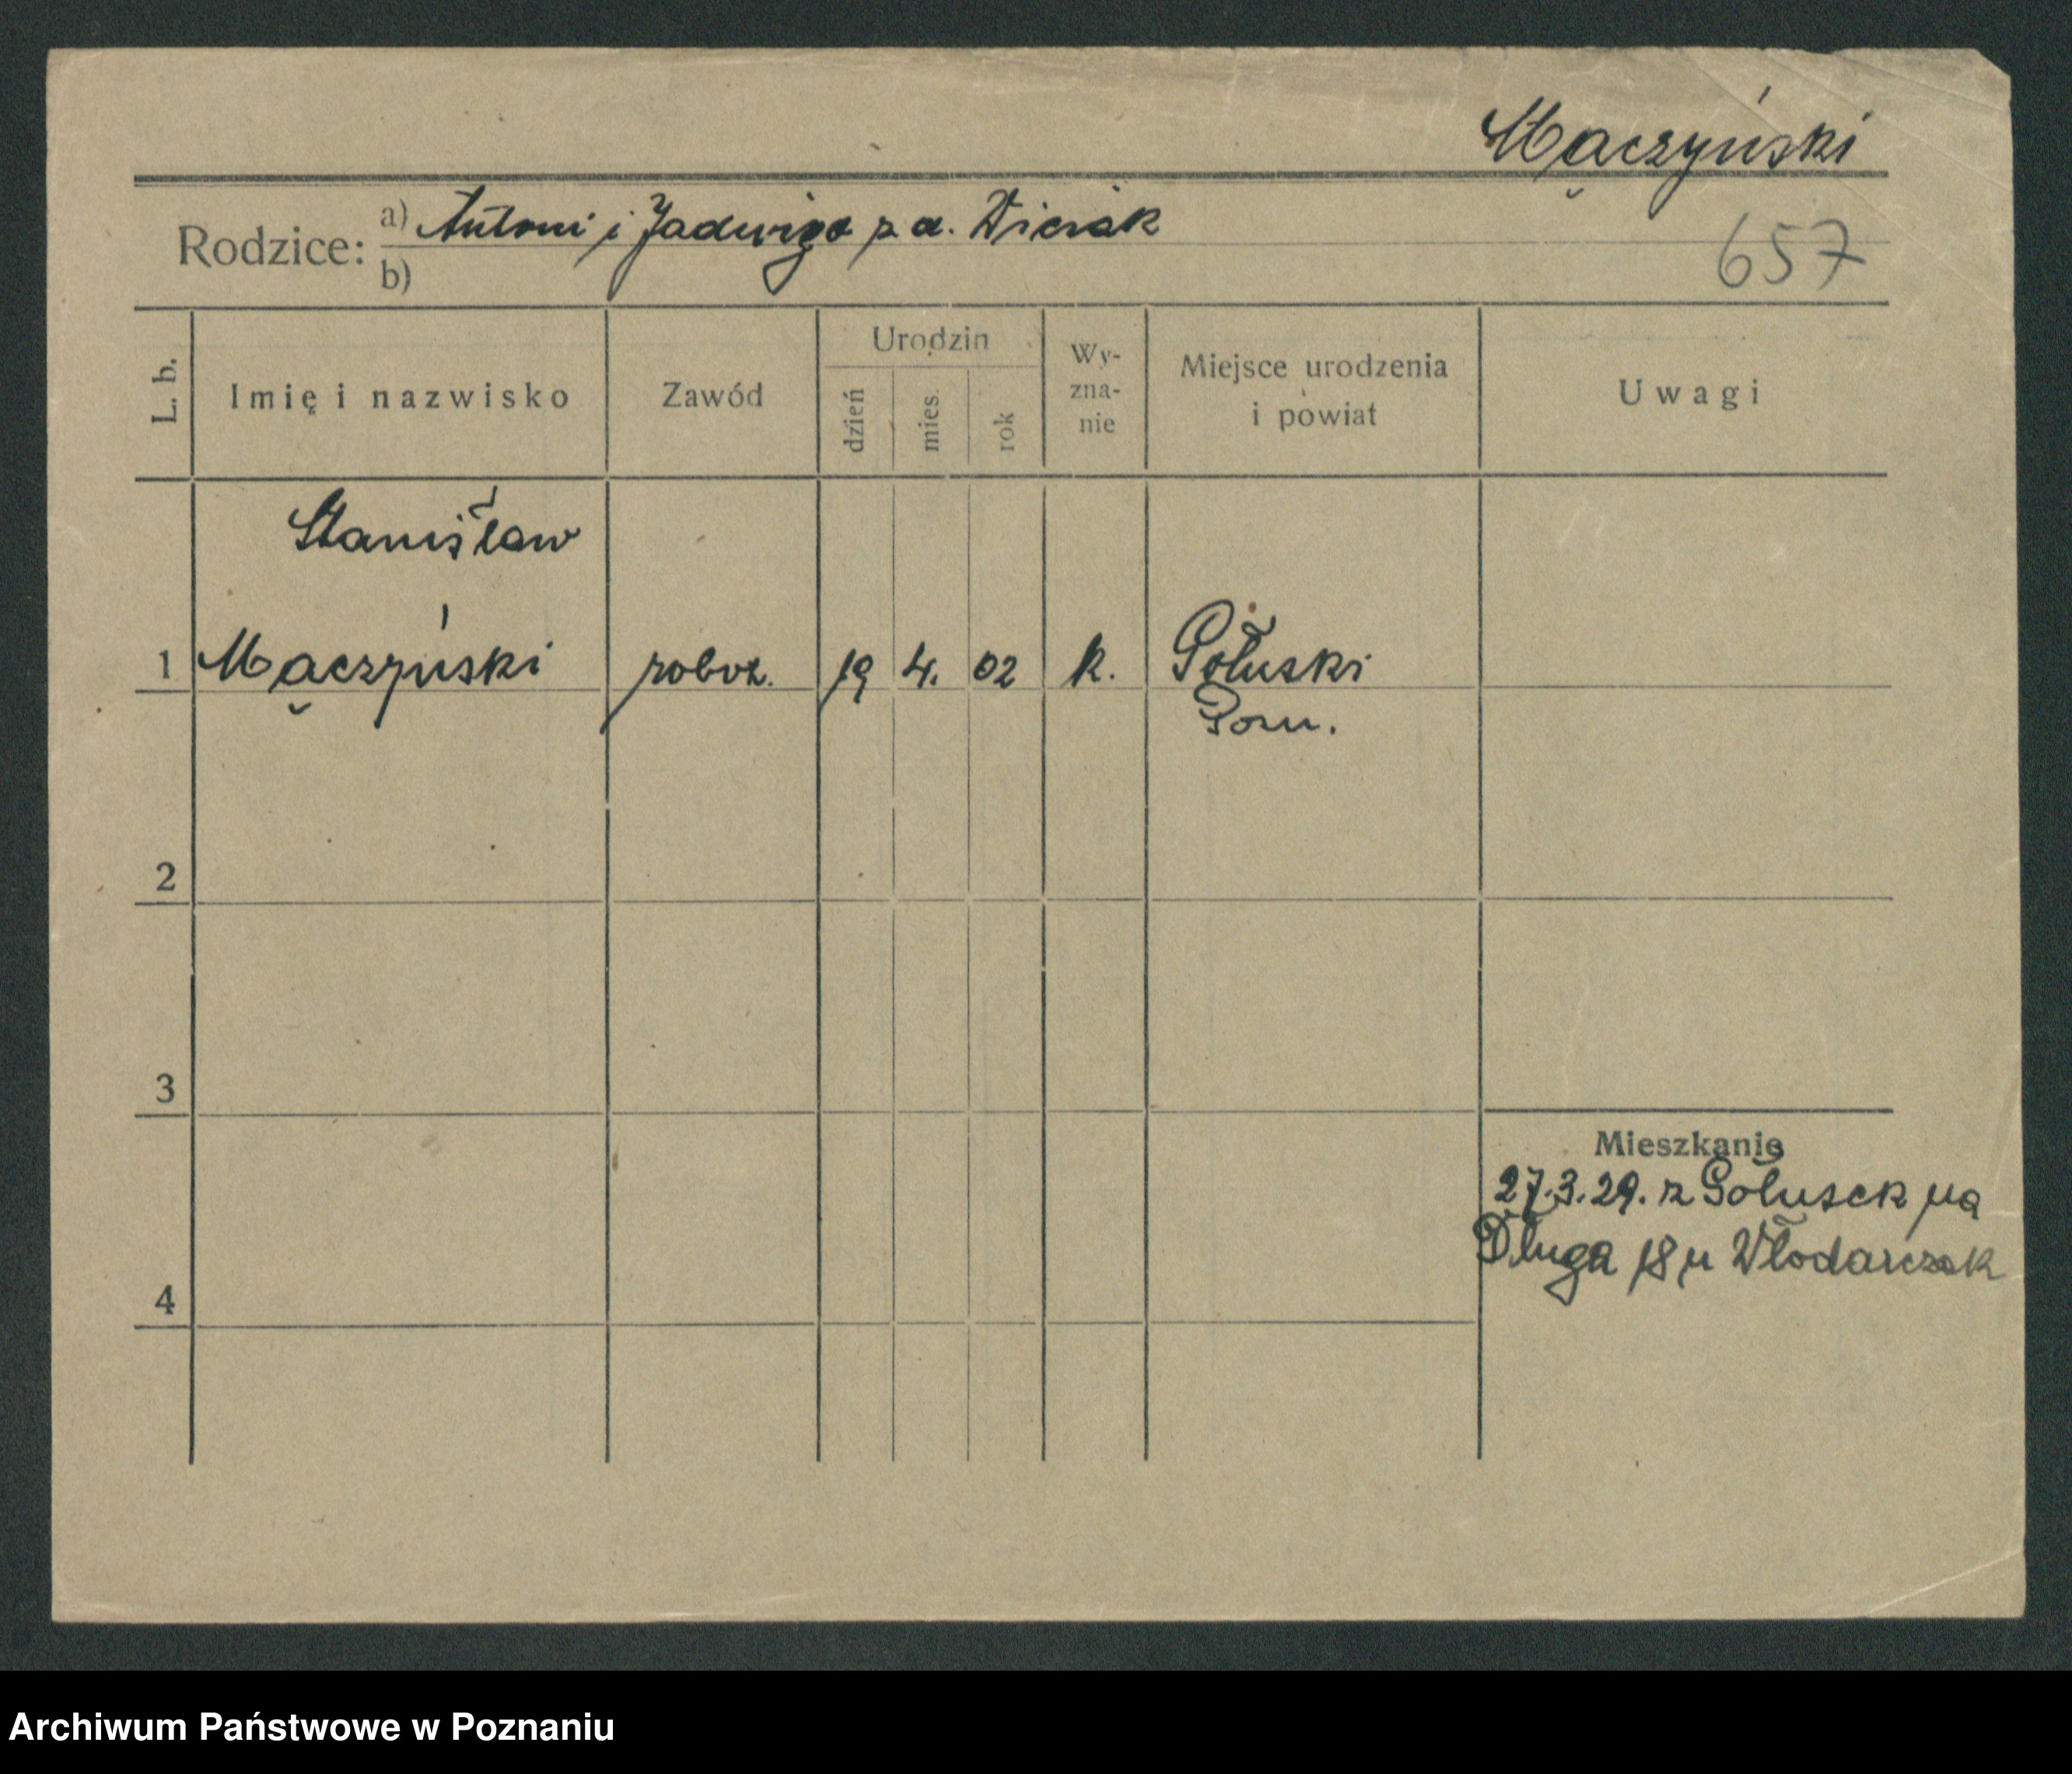 Mączyński
Rodzice: a) Antoni i Jadwiga z d.
b)
657
L. b.
Imię i nazwisko
Zawód
Urodzin
dzień
mies.
rok
Wy-
zna-
nie
Miejsce urodzenia
i powiat
Uwagi
Stanisław
1 Mączyński robot. 19 4. 02 k. Gołuski
Pozn.
2
3
Mieszkanie
27.3.29. z Gołusek na
Długa 18 u Włodarczak
4
Archiwum Państwowe w Poznaniu